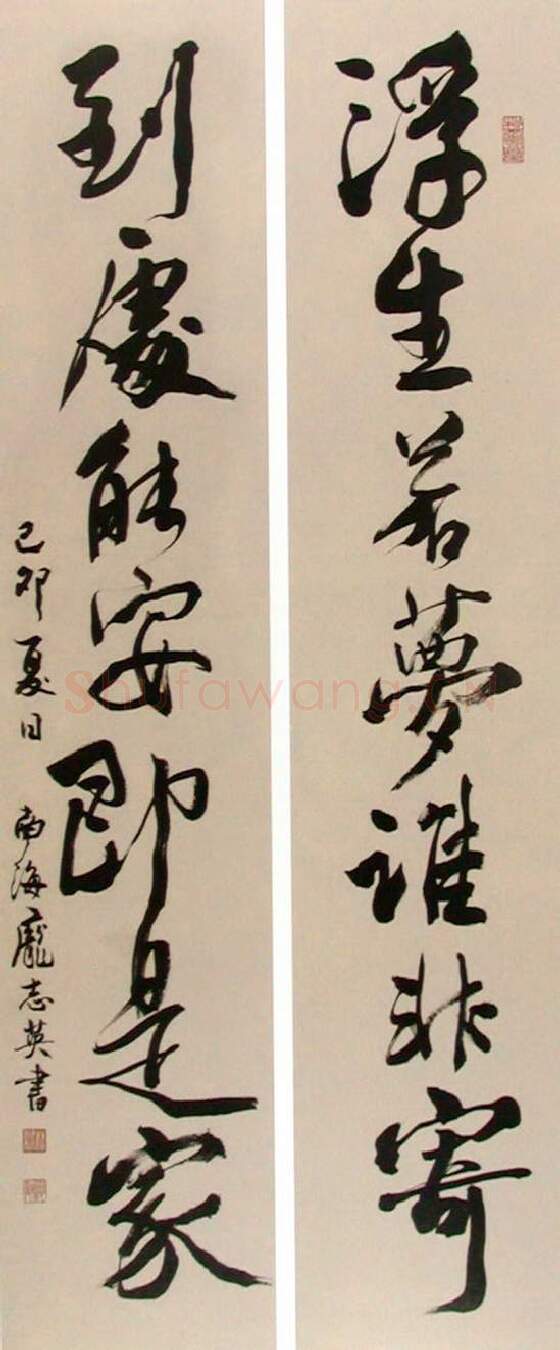 浮生若夢誰非寄
到處能安即是家
己卯夏日 南海龐志英書
Shufawang.CN